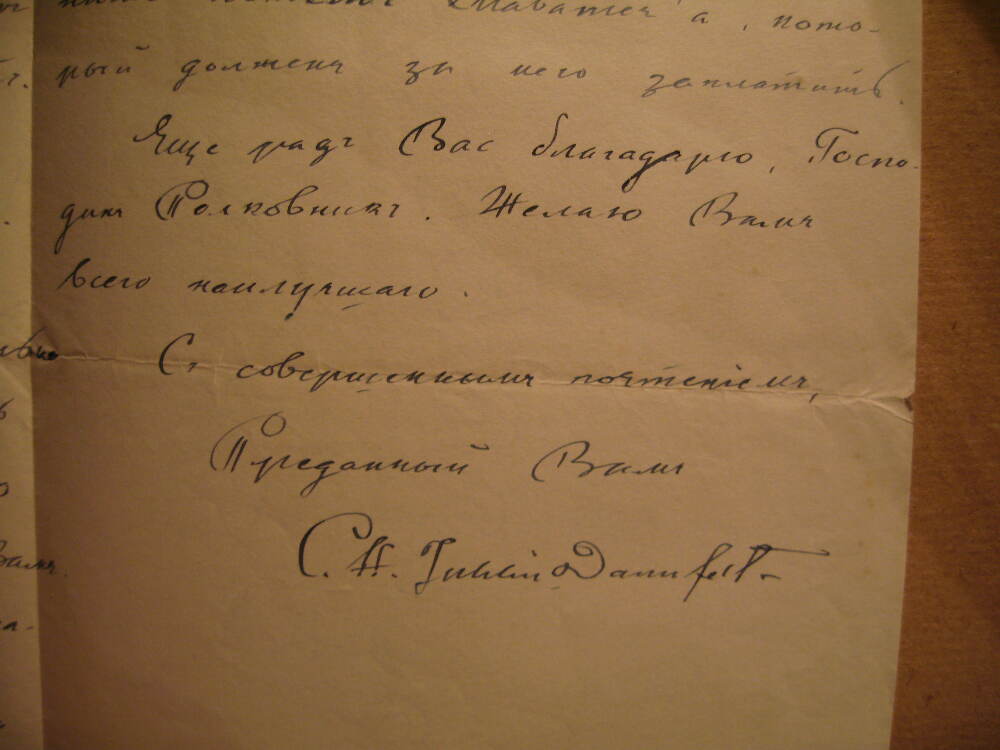 рый долженъ за него заплатить.
Еще разъ Вас благадарю, Госпо-
динъ Полковникъ. Желаю Вамъ
всего наилучшаго.
Съ совершеннымъ почтеніемъ,
Преданный Вамъ
C. H. Juhlin Dannfelt